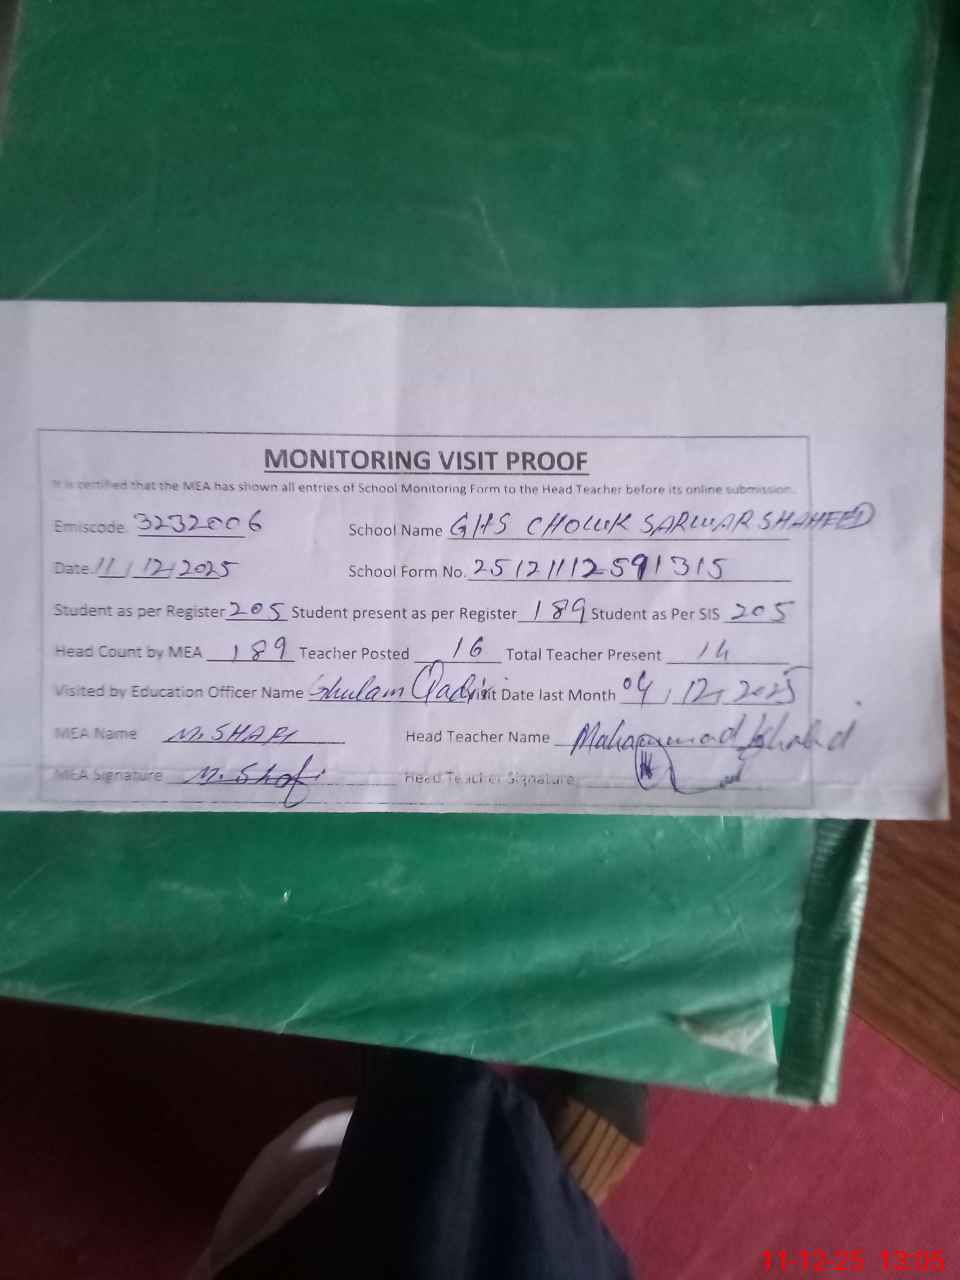 MONITORING VISIT PROOF
It is certified that the MEA has shown all entries of School Monitoring Form to the Head Teacher before its online submission.
Emiscode 32320006 School Name GHS CHOWK SARWAR SHAHEED
Date 11/12/2025 School Form No. 25121112591315
Student as per Register 205 Student present as per Register 189 Student as Per SIS 205
Head Count by MEA 189 Teacher Posted 16 Total Teacher Present 14
Visited by Education Officer Name Ghulam Qadir Visit Date last Month 04/12/2025
MEA Name M. SHAFI Head Teacher Name Muhammad Khalid
MEA Signature M. Shafi Head Teacher Signature
11-12-25 13:05